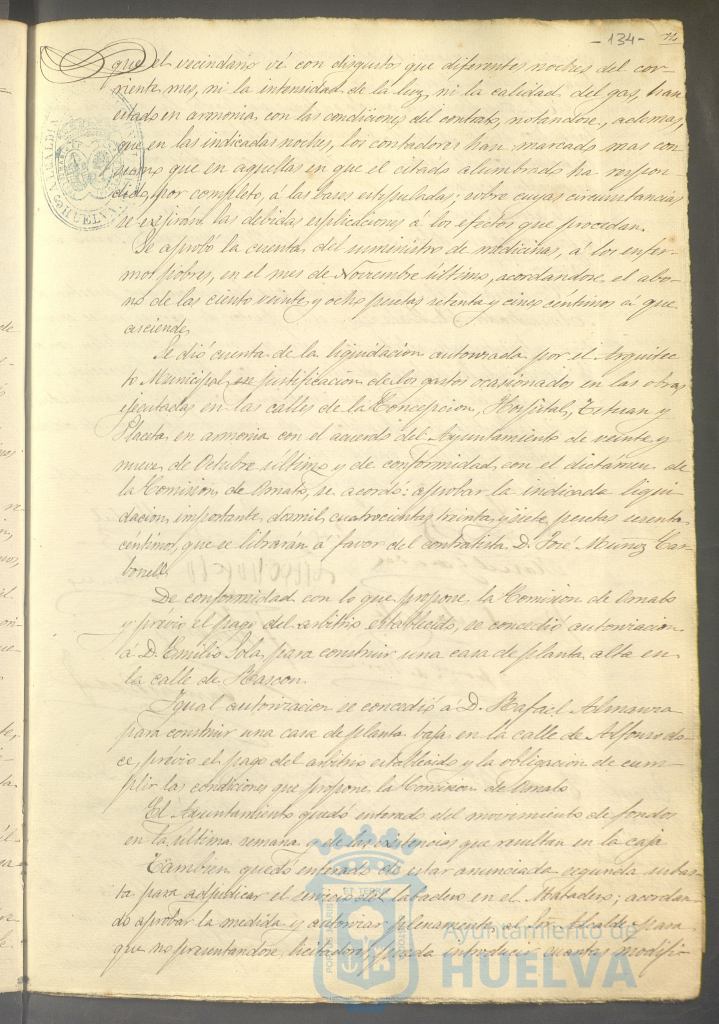 -134-
que el vecindario vé con disgusto que diferentes noches del cor-
riente mes, ni la intensidad de la luz, ni la calidad del gas, han
estado en armonia con las condiciones del contrato, notandose, ademas,
que en las indicadas noches, los contadores han marcado mas con
sumo que en aquellas en que el citado alumbrado ha respon-
dido, por completo, á las bases estipuladas; sobre cuyas circunstancias
se exijirán las debidas esplicaciones á los efectos que procedan.
Se aprobó la cuenta del suministro de medicinas, á los enfer-
mos pobres, en el mes de Noviembre último, acordandose el abo-
no de las ciento veinte y ocho pesetas setenta y cinco centimos á que
asciende.
Se dió cuenta de la liquidacion autorizada por el Arquitec
to Municipal, en justificacion de los gastos ocasionados en las obras
ejecutadas en las calles de la Concepcion, Hospital, Tetuan y
Placeta, en armonia con el acuerdo del Ayuntamiento de veinte y
nueve de Octubre último y de conformidad con el dictámen de
la Comision de Ornato, se acordó: aprobar la indicada liqui-
dacion, importante dosmil cuatrocientas treinta y siete pesetas sesenta
centimos, que se librarán á favor del contratista D. José Muñoz Car-
bonell.
De conformidad con lo que propone la Comision de Ornato
y prévio el pago del arbitrio establecido, se concedió autorizacion
á D. Emilio Sola, para construir una casa de planta alta en
la calle de Rascon.
Igual autorizacion se concedió a D. Rafael Almansa
para construir una casa de planta baja en la calle de Alfonso do-
ce, prévio el pago del arbitrio establecido y la obligacion de cum-
plir las condiciones que propone la Comision de Ornato
El Ayuntamiento quedó enterado del movimiento de fondos
en la última semana y de las existencias que resultan en la caja
Tambien quedó enterado de estar anunciada segunda subas-
ta para adjudicar el servicio del labadero en el Matadero; acordan
do aprobar la medida y autorizar plenamente al Sr. Alcalde para
que no presentandose licitadores, pueda introducir cuantas modifi-
ALCALDIA
HUELVA
Ayuntamiento de
HUELVA